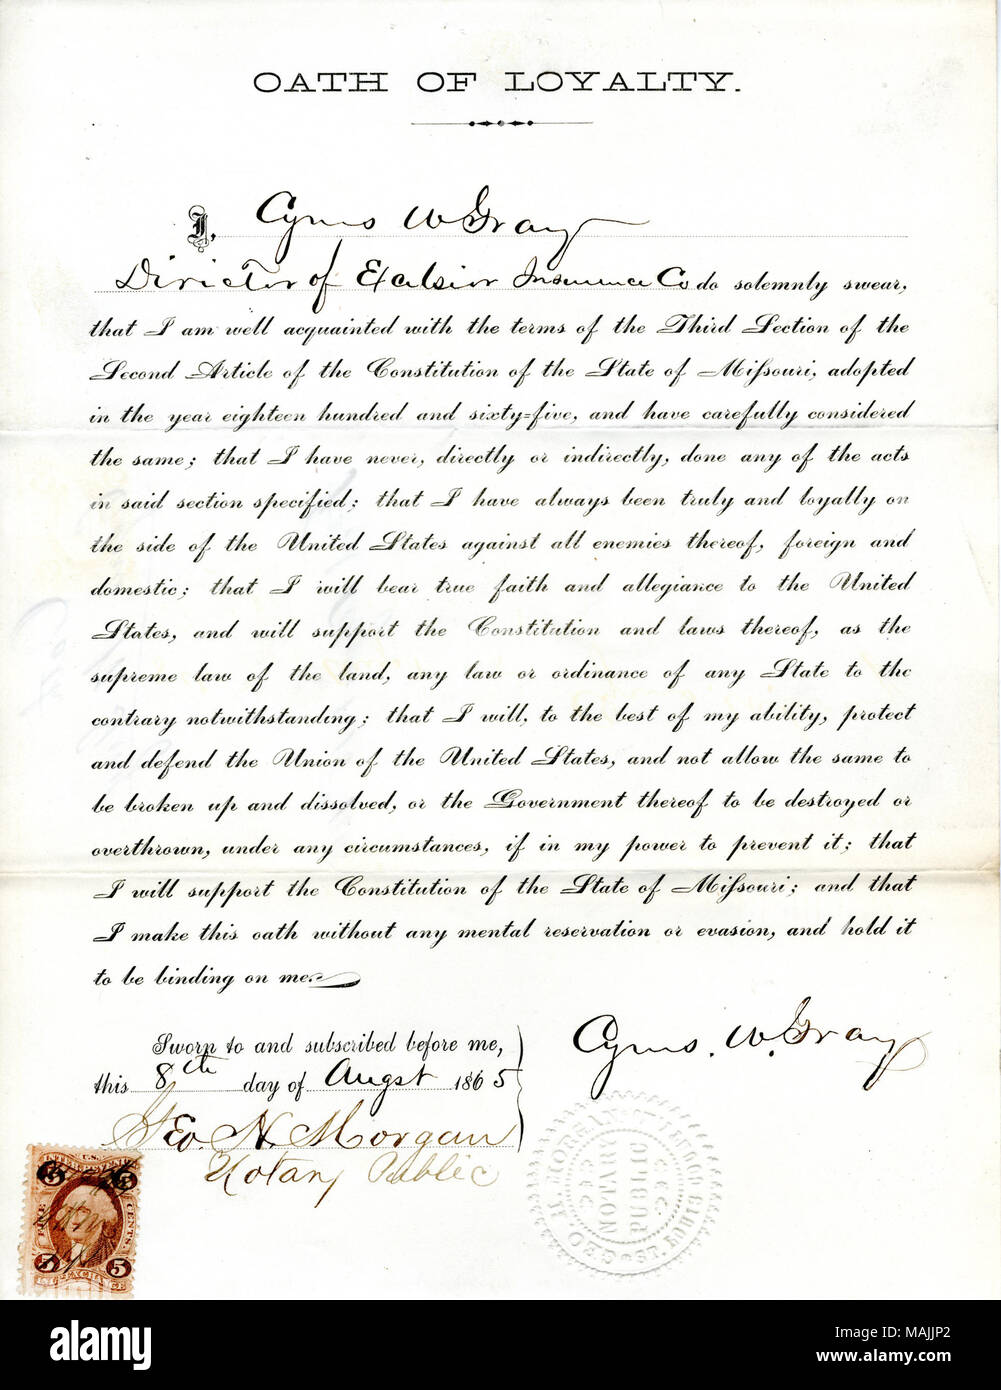 OATH OF LOYALTY.
I, Cyrus W Gray
Director of Excelsior Insurance Co do solemnly swear,
that I am well acquainted with the terms of the Third Section of the
Second Article of the Constitution of the State of Miſsouri, adopted
in the year eighteen hundred and sixty=five, and have carefully considered
the same; that I have never, directly or indirectly, done any of the acts
in said section specified; that I have always been truly and loyally on
the side of the United States against all enemies thereof, foreign and
domestic; that I will bear true faith and allegiance to the United
States, and will support the Constitution and laws thereof, as the
supreme law of the land, any law or ordinance of any State to the
contrary notwithstanding; that I will, to the best of my ability, protect
and defend the Union of the United States, and not allow the same to
be broken up and dissolved, or the Government thereof to be destroyed or
overthrown, under any circumstances, if in my power to prevent it; that
I will support the Constitution of the State of Miſsouri; and that
I make this oath without any mental reservation or evasion, and hold it
to be binding on me.
Sworn to and subscribed before me,
this 8th day of Augst 1865
Cyrus. W. Gray
Geo. H. Morgan
Notary Public
GEO. H. MORGAN
ST. LOUIS
NOTARY
PUBLIC
U.S.
5 5
FIVE CENTS
5 5
EXCHANGE
alamy
Image ID: MAJJP2
www.alamy.com